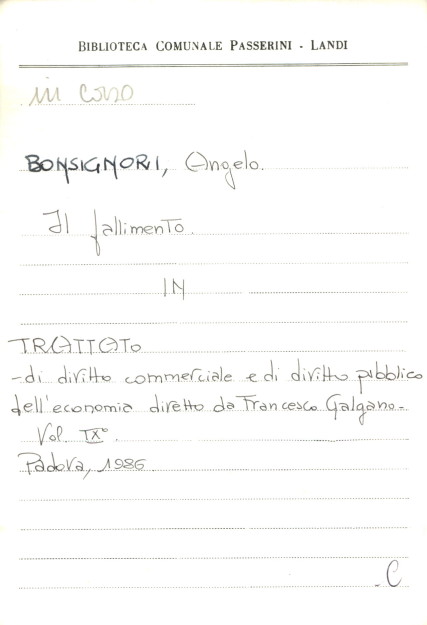 BIBLIOTECA COMUNALE PASSERINI - LANDI
in corso
BONSIGNORI, Angelo.
Il fallimento.
IN
TRATTATO
-di diritto commerciale e di diritto pubblico
dell'economia diretto da Francesco Galgano-
Vol. IX°.
Padova, 1986.
-C